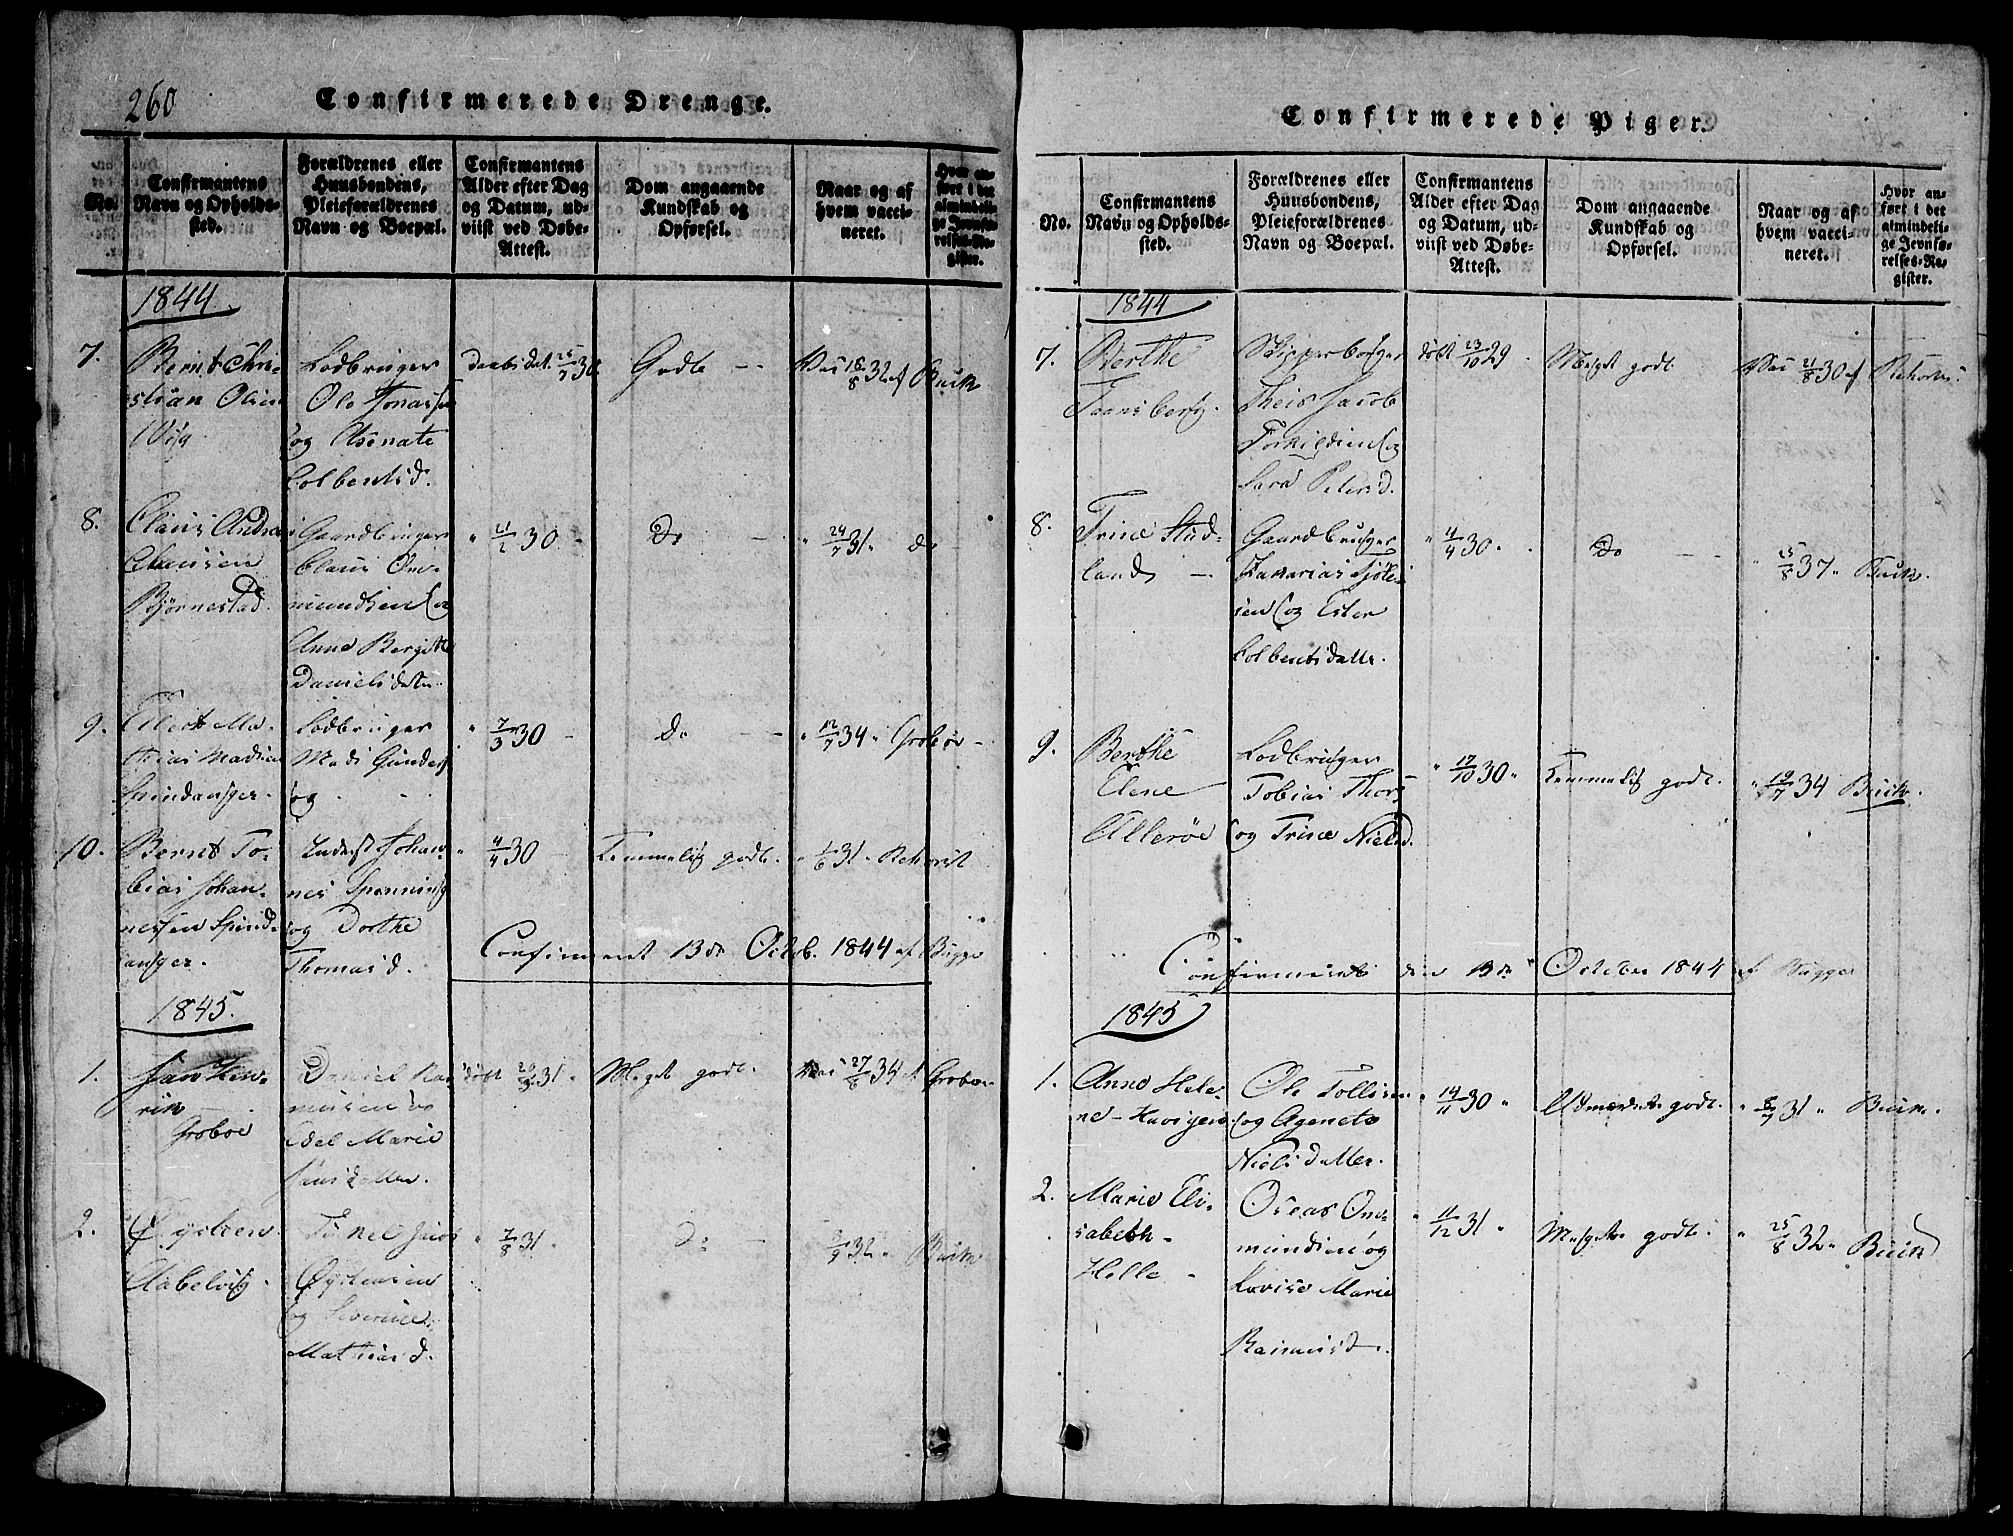 260
Confirmerede Drenge.
No.
Confirmantens
Navn og Opholds-
sted.
Forældrenes eller
Huusbondens,
Pleieforældrenes
Navn og Boepæl.
Confirmantens
Alder efter Dag
og Datum, ud-
viist ved Døbe-
Attest.
Dom angaaende
Kundskab og
Opførsel.
Naar og af
hvem vacci-
neret.
Hvor an-
ført i det
almindeli-
ge Jevnfø-
relses-Re-
gister.
1844.
7.
Bernt Chri-
stian Olsen
Lodbruger
Ole Jonassen
og Asenate
Colbentsd.
25/7 30
Godt
Vac 18/8 32 af Buch
8.
Claus Andrea
Clausen
Bjørnestad.
Gaardbruger
Claus Om-
mundsen og
Anne Bergitte
Danielsdatter
" 21/2 30 -
Do -
" 24/7 31 " do
9.
Eilert Ma-
thias Madsen
Spindanger.
Lodbruger
Mads Gunders
og
" 7/3 30 -
Do -
" 12/7 34 " Groboe -
10.
Bernt To-
bias Johan-
nessen Spind-
anger.
Inderst Johan-
nes
og Dorthe
Thomasd.
" 4/4 30 -
Temmelig godt.
31 " Rehorst
Confirmeret 13de Octob. 1844 af Bugge
1845.
1.
Groboe
Daniel Ras-
musen og
Edel Marie
Hansdatter.
31 "
Meget godt.
27/6 34 af Groboe
2.
Øysten
Aabelvig.
Jacob
Øystensen
og Severine
Mathiasd.
" 7/8 31 "
Do -
32 " Buch
Confirmerede Piger.
No.
Confirmantens
Navn og Opholds-
sted.
Forældrenes eller
Huusbondens,
Pleieforældrenes
Navn og Boepæl.
Confirmantens
Alder efter Dag
og Datum, ud-
viist ved Døbe-
Attest.
Dom angaaende
Kundskab og
Opførsel.
Naar og af
hvem vacci-
neret.
Hvor an-
ført i det
almindeli-
ge Jevnfø-
relses-Re-
gister.
1844
7.
Berthe
Skipperborger
Theis Jacob
Torkildsen og
Sara Petersd.
døbt 23/10 29
Meget godt
Vac 21/8 30 af Rehorst.
8.
Trine Stud-
land -
Gaardbruger
Zakarias
sen og Ester
Colbentsdatter.
" 4/4 30 "
Do - -
" 25/8 37 " Buch.
9.
Berthe
Elene
Allerøe
Lodbruger
Tobias Thors
og Trine Nielsd.
" 17/10 30 "
Temmelig godt.
" 19/7 34 Buch.
Confirmeret den 13de October 1844 af Bugge
1845
1.
Anne Hele-
ne
Ole Tollisen
og Agenete
Nielsdatter.
" 14/11 30 "
Udmærket godt.
" 8/7 31 " Buch.
2.
Marie Eli-
sabeth -
Helle -
Oseas Om-
mundsen og
Lovise Marie
Rasmusd.
" 11/12 31 "
Meget godt.
" 25/8 32 " Buch